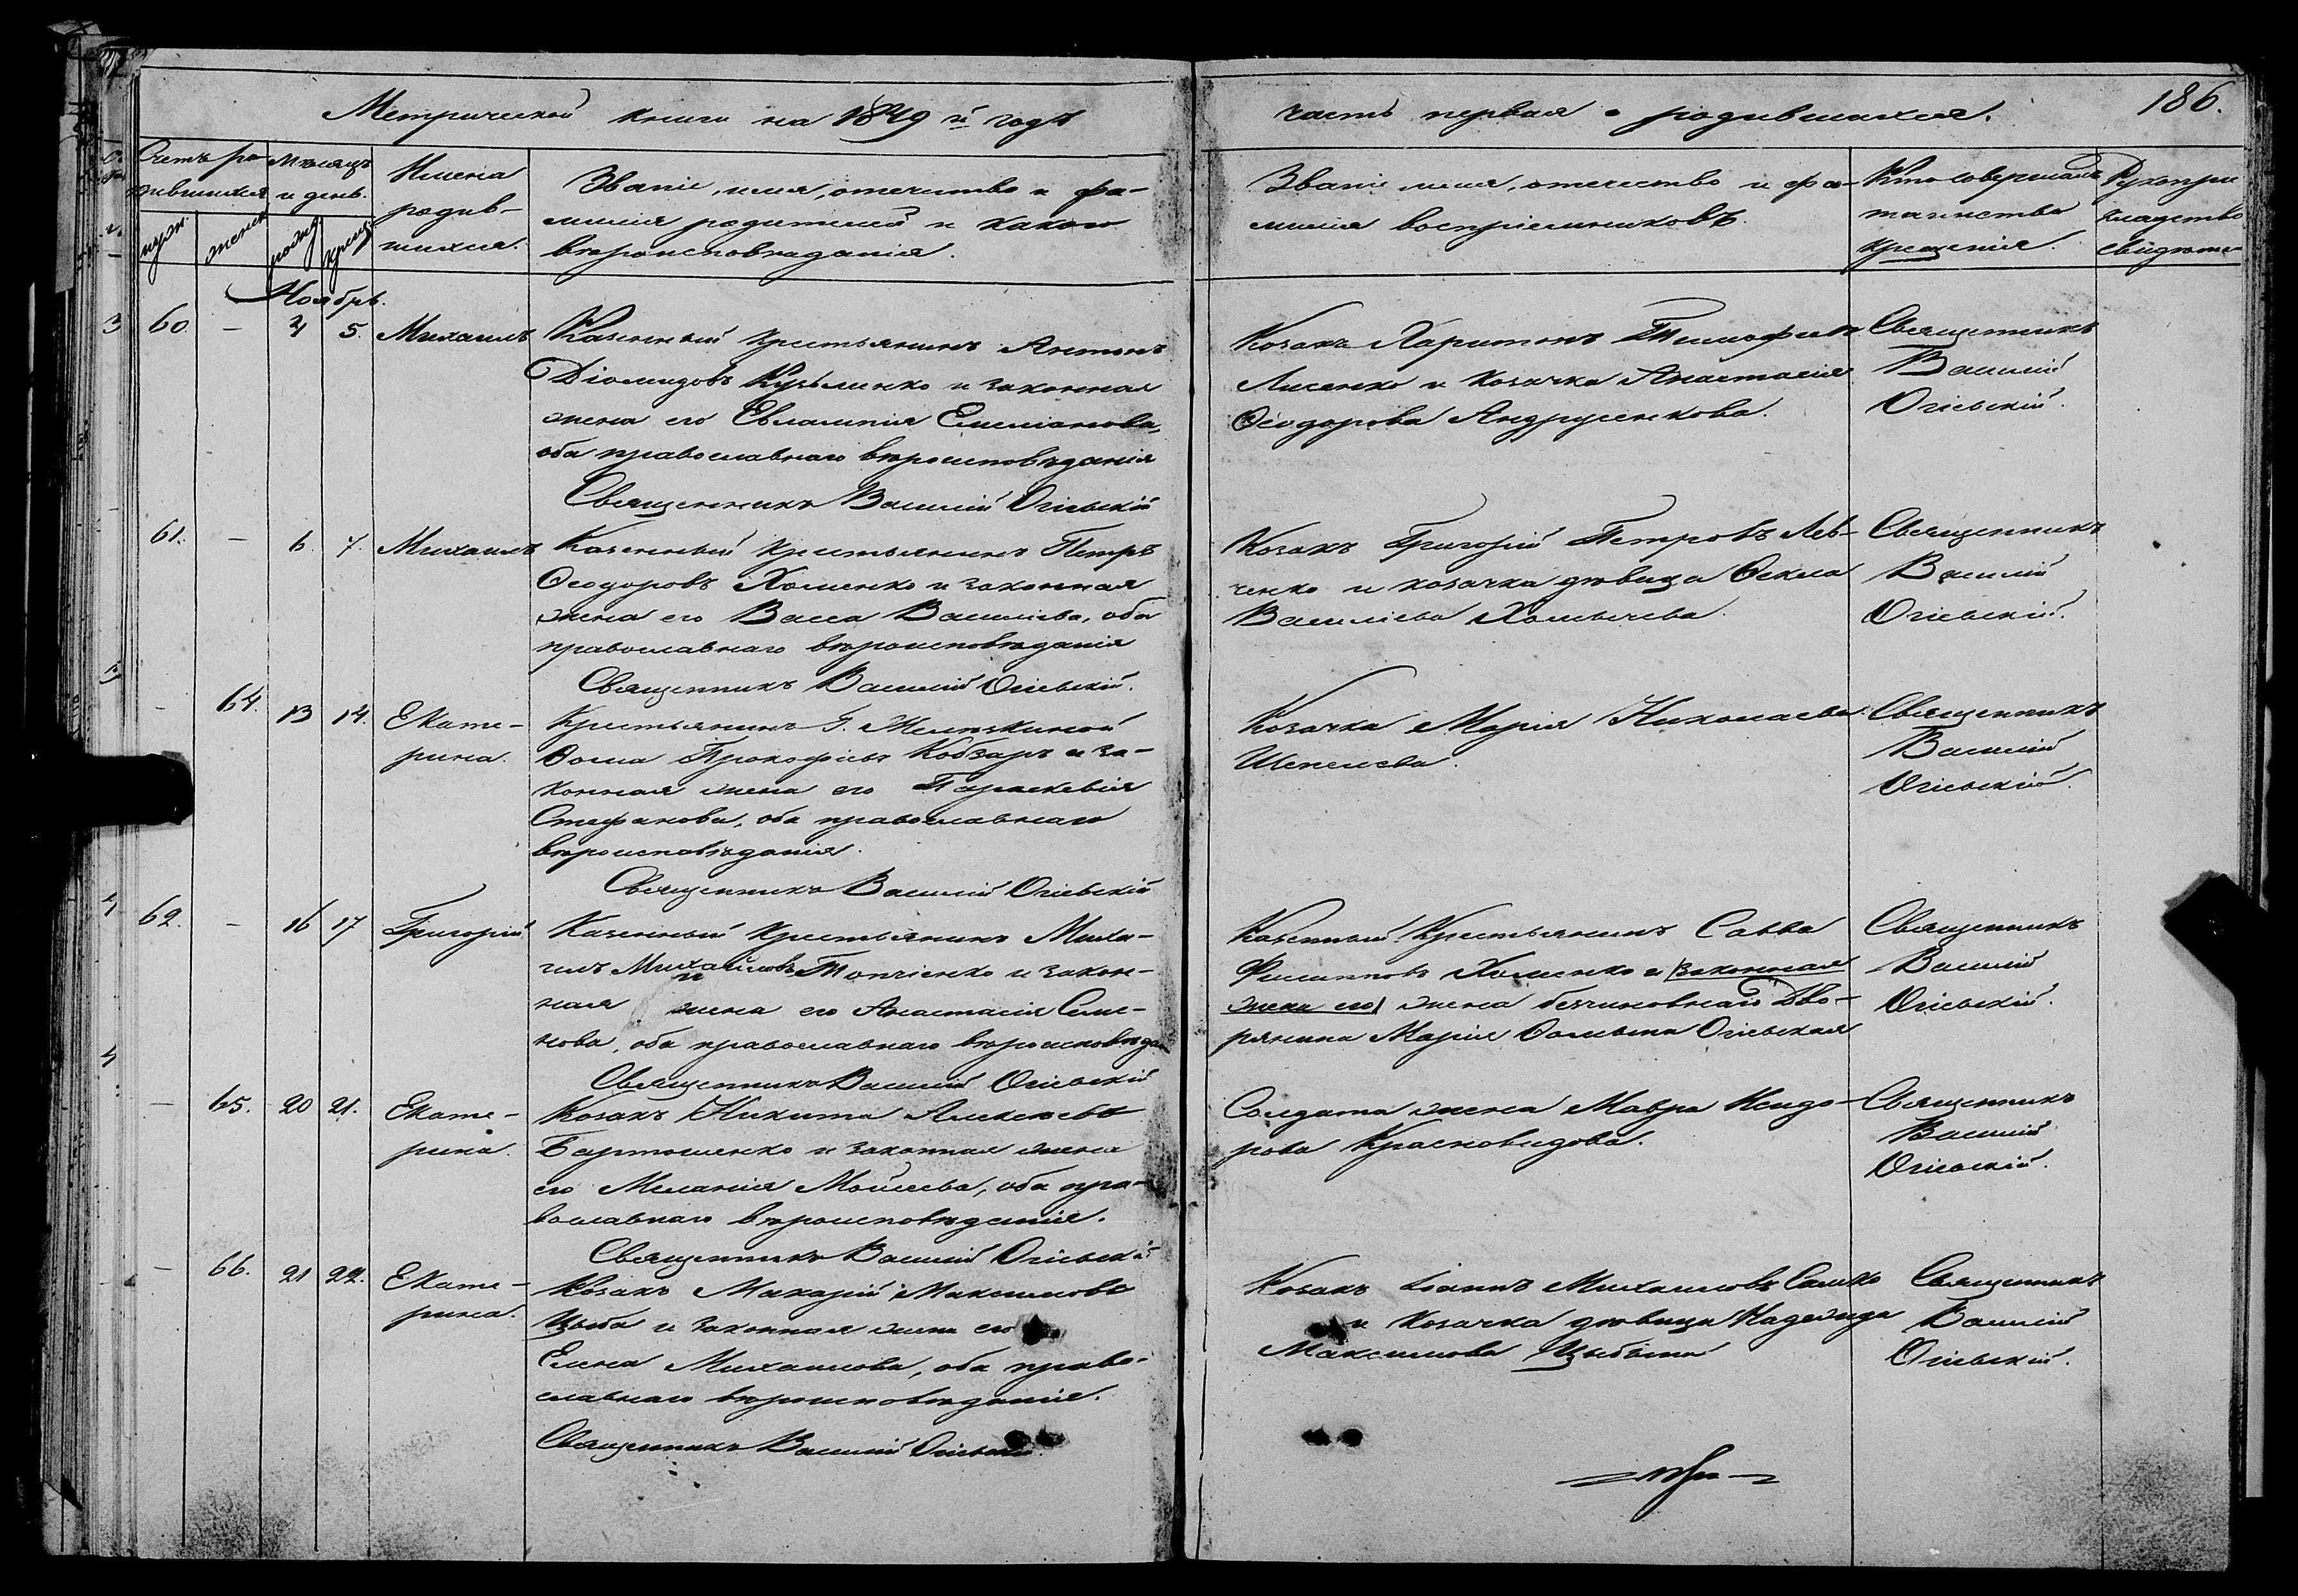 Метрической книги на 1849й годъ
часть первая о родившихся.
186.
Счетъ ро-
дившихся
муж.
женск
Мѣсяцъ
и день.
рожд.
крещ.
Имена
родив-
шихся.
Званіе, имя, отечество и фа-
милія родителей и какого
вѣроисповѣданія.
Званіе имя, отечество и фа-
милія воспріемниковъ.
Кто совершалъ
таинство
крещенія.
Рукопри
кладство
свидѣте-
Ноябрь.
60. – 4 5. Михаилъ
Казенный крестьянинъ Антонъ
Діомидовъ Кузьменко и законная
жена его Евлампія Емеліанова,
оба православнаго вѣроисповѣданія
Священникъ Василій Огіевскій
Козакъ Харитонъ Тимофеевъ
Лисенко и козачка Анастасія
Ѳеодорова Андрусенкова.
Священникъ
Василій
Огіевскій.
61. – 6. 7. Михаилъ
Казенный крестьянинъ Петръ
Ѳеодоровъ Хоменко и законная
жена его Васса Василіева, оба
православнаго вѣроисповѣданія
Священникъ Василій Огіевскій.
Козакъ Григорій Петровъ Лев-
ченко и козачка дѣвица Ѳекла
Василіева
Священникъ
Василій
Огіевскій.
– 64. 13 14. Екате-
рина.
Крестьянинъ Г.
Ѳома Прокофіевъ Кобзарь и за-
конная жена его Параскевія
Стефанова, оба православнаго
вѣроисповѣданія.
Священникъ Василій Огіевскій
Козачка Марія Николаева
Шепелева.
Священникъ
Василій
Огіевскій.
62. – 16 17 Григорій
Казенный крестьянинъ Миха-
илъ Михайловъ и закон-
ная жена его Анастасія Симе-
нова, оба православнаго вѣроисповѣдан
Священникъ Василій Огіевскій
Казенный Крестьянинъ Савва
Филиповъ Хоменко и законная
жена его жена безчиновнаго Дво-
рянина Марія Огіевская
Священникъ
Василій
Огіевскій.
– 65. 20 21. Екате-
рина.
Козакъ Никита Алексѣевъ
Бартошенко и законная жена
его Меланія Моисеева, оба пра-
вославнаго вѣроисповѣданія.
Священникъ Василій Огіевскій
Солдата жена Мавра Исидо-
рова Красновидова.
Священникъ
Василій
Огіевскій.
– 66. 21 22. Екате-
рина.
Козакъ Макарій Максимовъ
Цыба и законная жена его
Елена Михаилова, оба право-
славнаго вѣроисповѣданія.
Священникъ Василій Огіевскій.
Козакъ Іоаннъ Михаиловъ Сашко
и козачка дѣвица Надежда
Максимова Цыбына
Священникъ
Василій
Огіевскій.